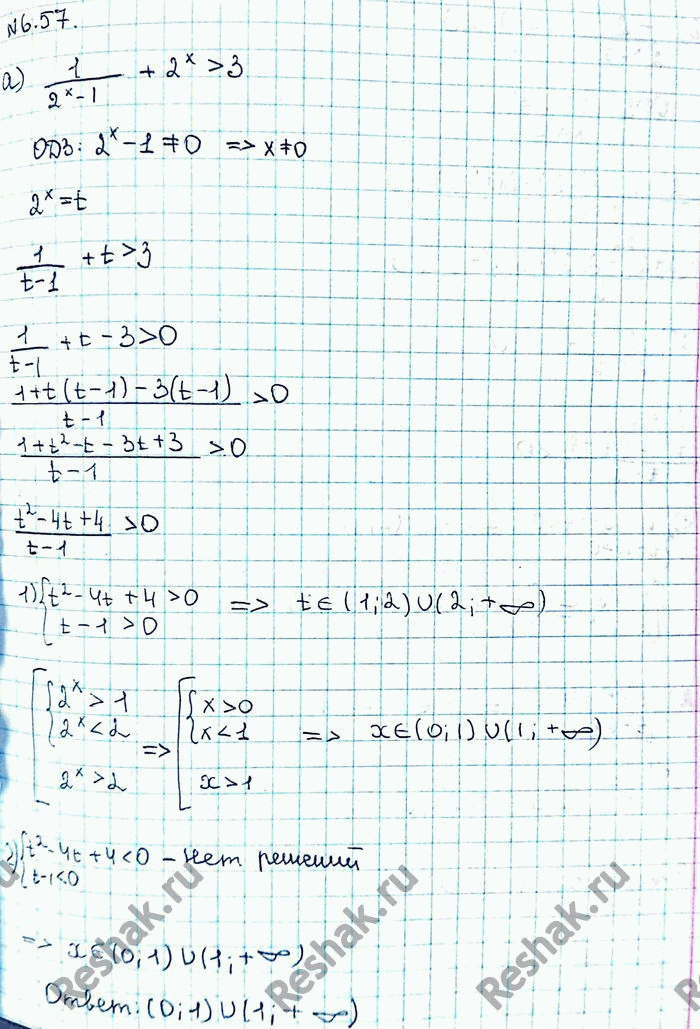 №6.57.
а) 1/(2ˣ-1) + 2ˣ > 3
ОДЗ: 2ˣ - 1 ≠ 0 => x ≠ 0
2ˣ = t
1/(t-1) + t > 3
1/(t-1) + t - 3 > 0
(1+t(t-1) - 3(t-1))/(t-1) > 0
(1+t²-t-3t+3)/(t-1) > 0
(t²-4t+4)/(t-1) > 0
1) { t²-4t+4>0 => t∈(1;2)∪(2;+∞)
t-1>0
[ { 2ˣ>1 => [ { x>0
2ˣ<2 x<1 => x∈(0;1)∪(1;+∞)
2ˣ>2 x>1
2) { t²-4t+4<0 - нет решений
t-1<0
=> x∈(0;1)∪(1;+∞)
Ответ: (0;1)∪(1;+∞)
Reshak.ru
Reshak.ru
Reshak.ru